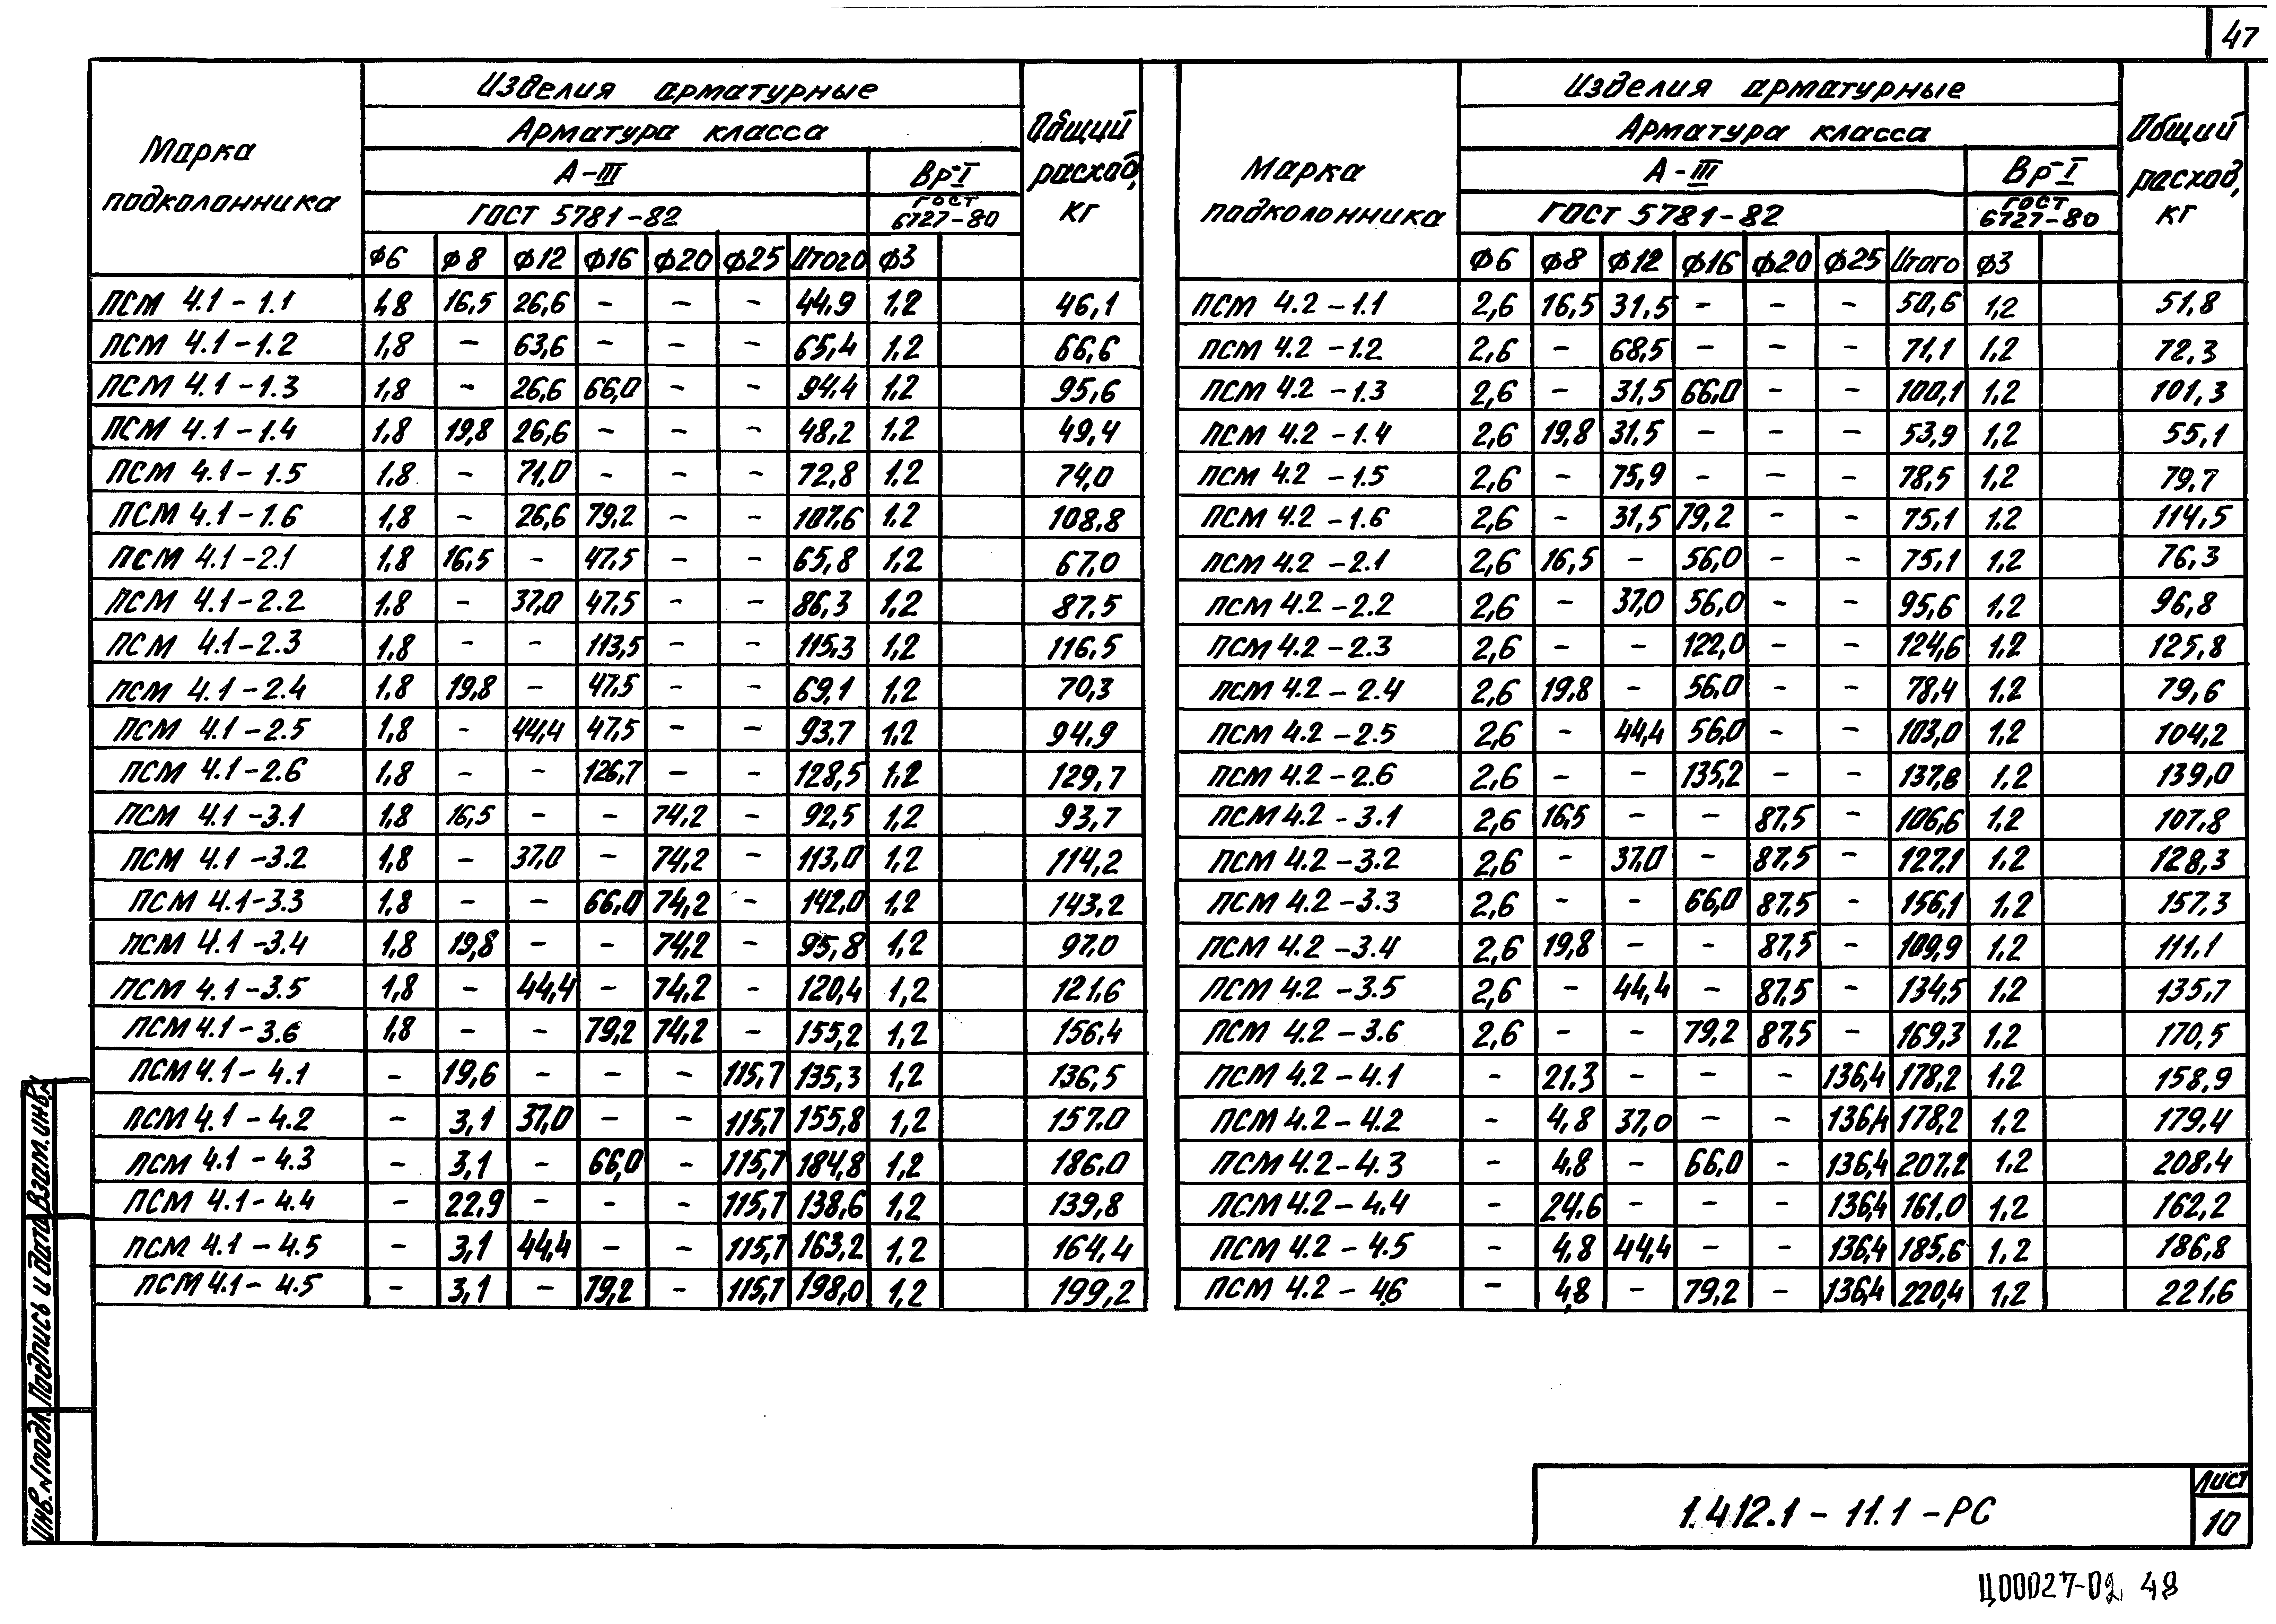 47
Марка подколонника
Изделия арматурные
Арматура класса
А-III
Вр-I
ГОСТ 5781-82
ГОСТ 6727-80
Общий расход, кг
ф6 ф8 ф12 ф16 ф20 ф25 Итого ф3
ПСМ 4.1-1.1 1,8 16,5 26,6 - - - 44,9 1,2 46,1
ПСМ 4.1-1.2 1,8 - 63,6 - - - 65,4 1,2 66,6
ПСМ 4.1-1.3 1,8 - 26,6 66,0 - - 94,4 1,2 95,6
ПСМ 4.1-1.4 1,8 19,8 26,6 - - - 48,2 1,2 49,4
ПСМ 4.1-1.5 1,8 - 71,0 - - - 72,8 1,2 74,0
ПСМ 4.1-1.6 1,8 - 26,6 79,2 - - 107,6 1,2 108,8
ПСМ 4.1-2.1 1,8 16,5 - 47,5 - - 65,8 1,2 67,0
ПСМ 4.1-2.2 1,8 - 37,0 47,5 - - 86,3 1,2 87,5
ПСМ 4.1-2.3 1,8 - - 113,5 - - 115,3 1,2 116,5
ПСМ 4.1-2.4 1,8 19,8 - 47,5 - - 69,1 1,2 70,3
ПСМ 4.1-2.5 1,8 - 44,4 47,5 - - 93,7 1,2 94,9
ПСМ 4.1-2.6 1,8 - - 126,7 - - 128,5 1,2 129,7
ПСМ 4.1-3.1 1,8 16,5 - - 74,2 - 92,5 1,2 93,7
ПСМ 4.1-3.2 1,8 - 37,0 - 74,2 - 113,0 1,2 114,2
ПСМ 4.1-3.3 1,8 - - 66,0 74,2 - 142,0 1,2 143,2
ПСМ 4.1-3.4 1,8 19,8 - - 74,2 - 95,8 1,2 97,0
ПСМ 4.1-3.5 1,8 - 44,4 - 74,2 - 120,4 1,2 121,6
ПСМ 4.1-3.6 1,8 - - 79,2 74,2 - 155,2 1,2 156,4
ПСМ 4.1-4.1 - 19,6 - - - 115,7 135,3 1,2 136,5
ПСМ 4.1-4.2 - 3,1 37,0 - - 115,7 155,8 1,2 157,0
ПСМ 4.1-4.3 - 3,1 - 66,0 - 115,7 184,8 1,2 186,0
ПСМ 4.1-4.4 - 22,9 - - - 115,7 138,6 1,2 139,8
ПСМ 4.1-4.5 - 3,1 44,4 - - 115,7 163,2 1,2 164,4
ПСМ 4.1-4.5 - 3,1 - 79,2 - 115,7 198,0 1,2 199,2
Марка подколонника
Изделия арматурные
Арматура класса
А-III
Вр-I
ГОСТ 5781-82
ГОСТ 6727-80
Общий расход, кг
ф6 ф8 ф12 ф16 ф20 ф25 Итого ф3
ПСМ 4.2-1.1 2,6 16,5 31,5 - - - 50,6 1,2 51,8
ПСМ 4.2-1.2 2,6 - 68,5 - - - 71,1 1,2 72,3
ПСМ 4.2-1.3 2,6 - 31,5 66,0 - - 100,1 1,2 101,3
ПСМ 4.2-1.4 2,6 19,8 31,5 - - - 53,9 1,2 55,1
ПСМ 4.2-1.5 2,6 - 75,9 - - - 78,5 1,2 79,7
ПСМ 4.2-1.6 2,6 - 31,5 79,2 - - 75,1 1,2 114,5
ПСМ 4.2-2.1 2,6 16,5 - 56,0 - - 75,1 1,2 76,3
ПСМ 4.2-2.2 2,6 - 37,0 56,0 - - 95,6 1,2 96,8
ПСМ 4.2-2.3 2,6 - - 122,0 - - 124,6 1,2 125,8
ПСМ 4.2-2.4 2,6 19,8 - 56,0 - - 78,4 1,2 79,6
ПСМ 4.2-2.5 2,6 - 44,4 56,0 - - 103,0 1,2 104,2
ПСМ 4.2-2.6 2,6 - - 135,2 - - 137,8 1,2 139,0
ПСМ 4.2-3.1 2,6 16,5 - - 87,5 - 106,6 1,2 107,8
ПСМ 4.2-3.2 2,6 - 37,0 - 87,5 - 127,1 1,2 128,3
ПСМ 4.2-3.3 2,6 - - 66,0 87,5 - 156,1 1,2 157,3
ПСМ 4.2-3.4 2,6 19,8 - - 87,5 - 109,9 1,2 111,1
ПСМ 4.2-3.5 2,6 - 44,4 - 87,5 - 134,5 1,2 135,7
ПСМ 4.2-3.6 2,6 - - 79,2 87,5 - 169,3 1,2 170,5
ПСМ 4.2-4.1 - 21,3 - - - 136,4 178,2 1,2 158,9
ПСМ 4.2-4.2 - 4,8 37,0 - - 136,4 178,2 1,2 179,4
ПСМ 4.2-4.3 - 4,8 - 66,0 - 136,4 207,2 1,2 208,4
ПСМ 4.2-4.4 - 24,6 - - - 136,4 161,0 1,2 162,2
ПСМ 4.2-4.5 - 4,8 44,4 - - 136,4 185,6 1,2 186,8
ПСМ 4.2-4.6 - 4,8 - 79,2 - 136,4 220,4 1,2 221,6
Взам.инв.№
Подпись и дата
Инв.№подл.
1.412.1-11.1-РС
Лист
10
Ц00027-02 48